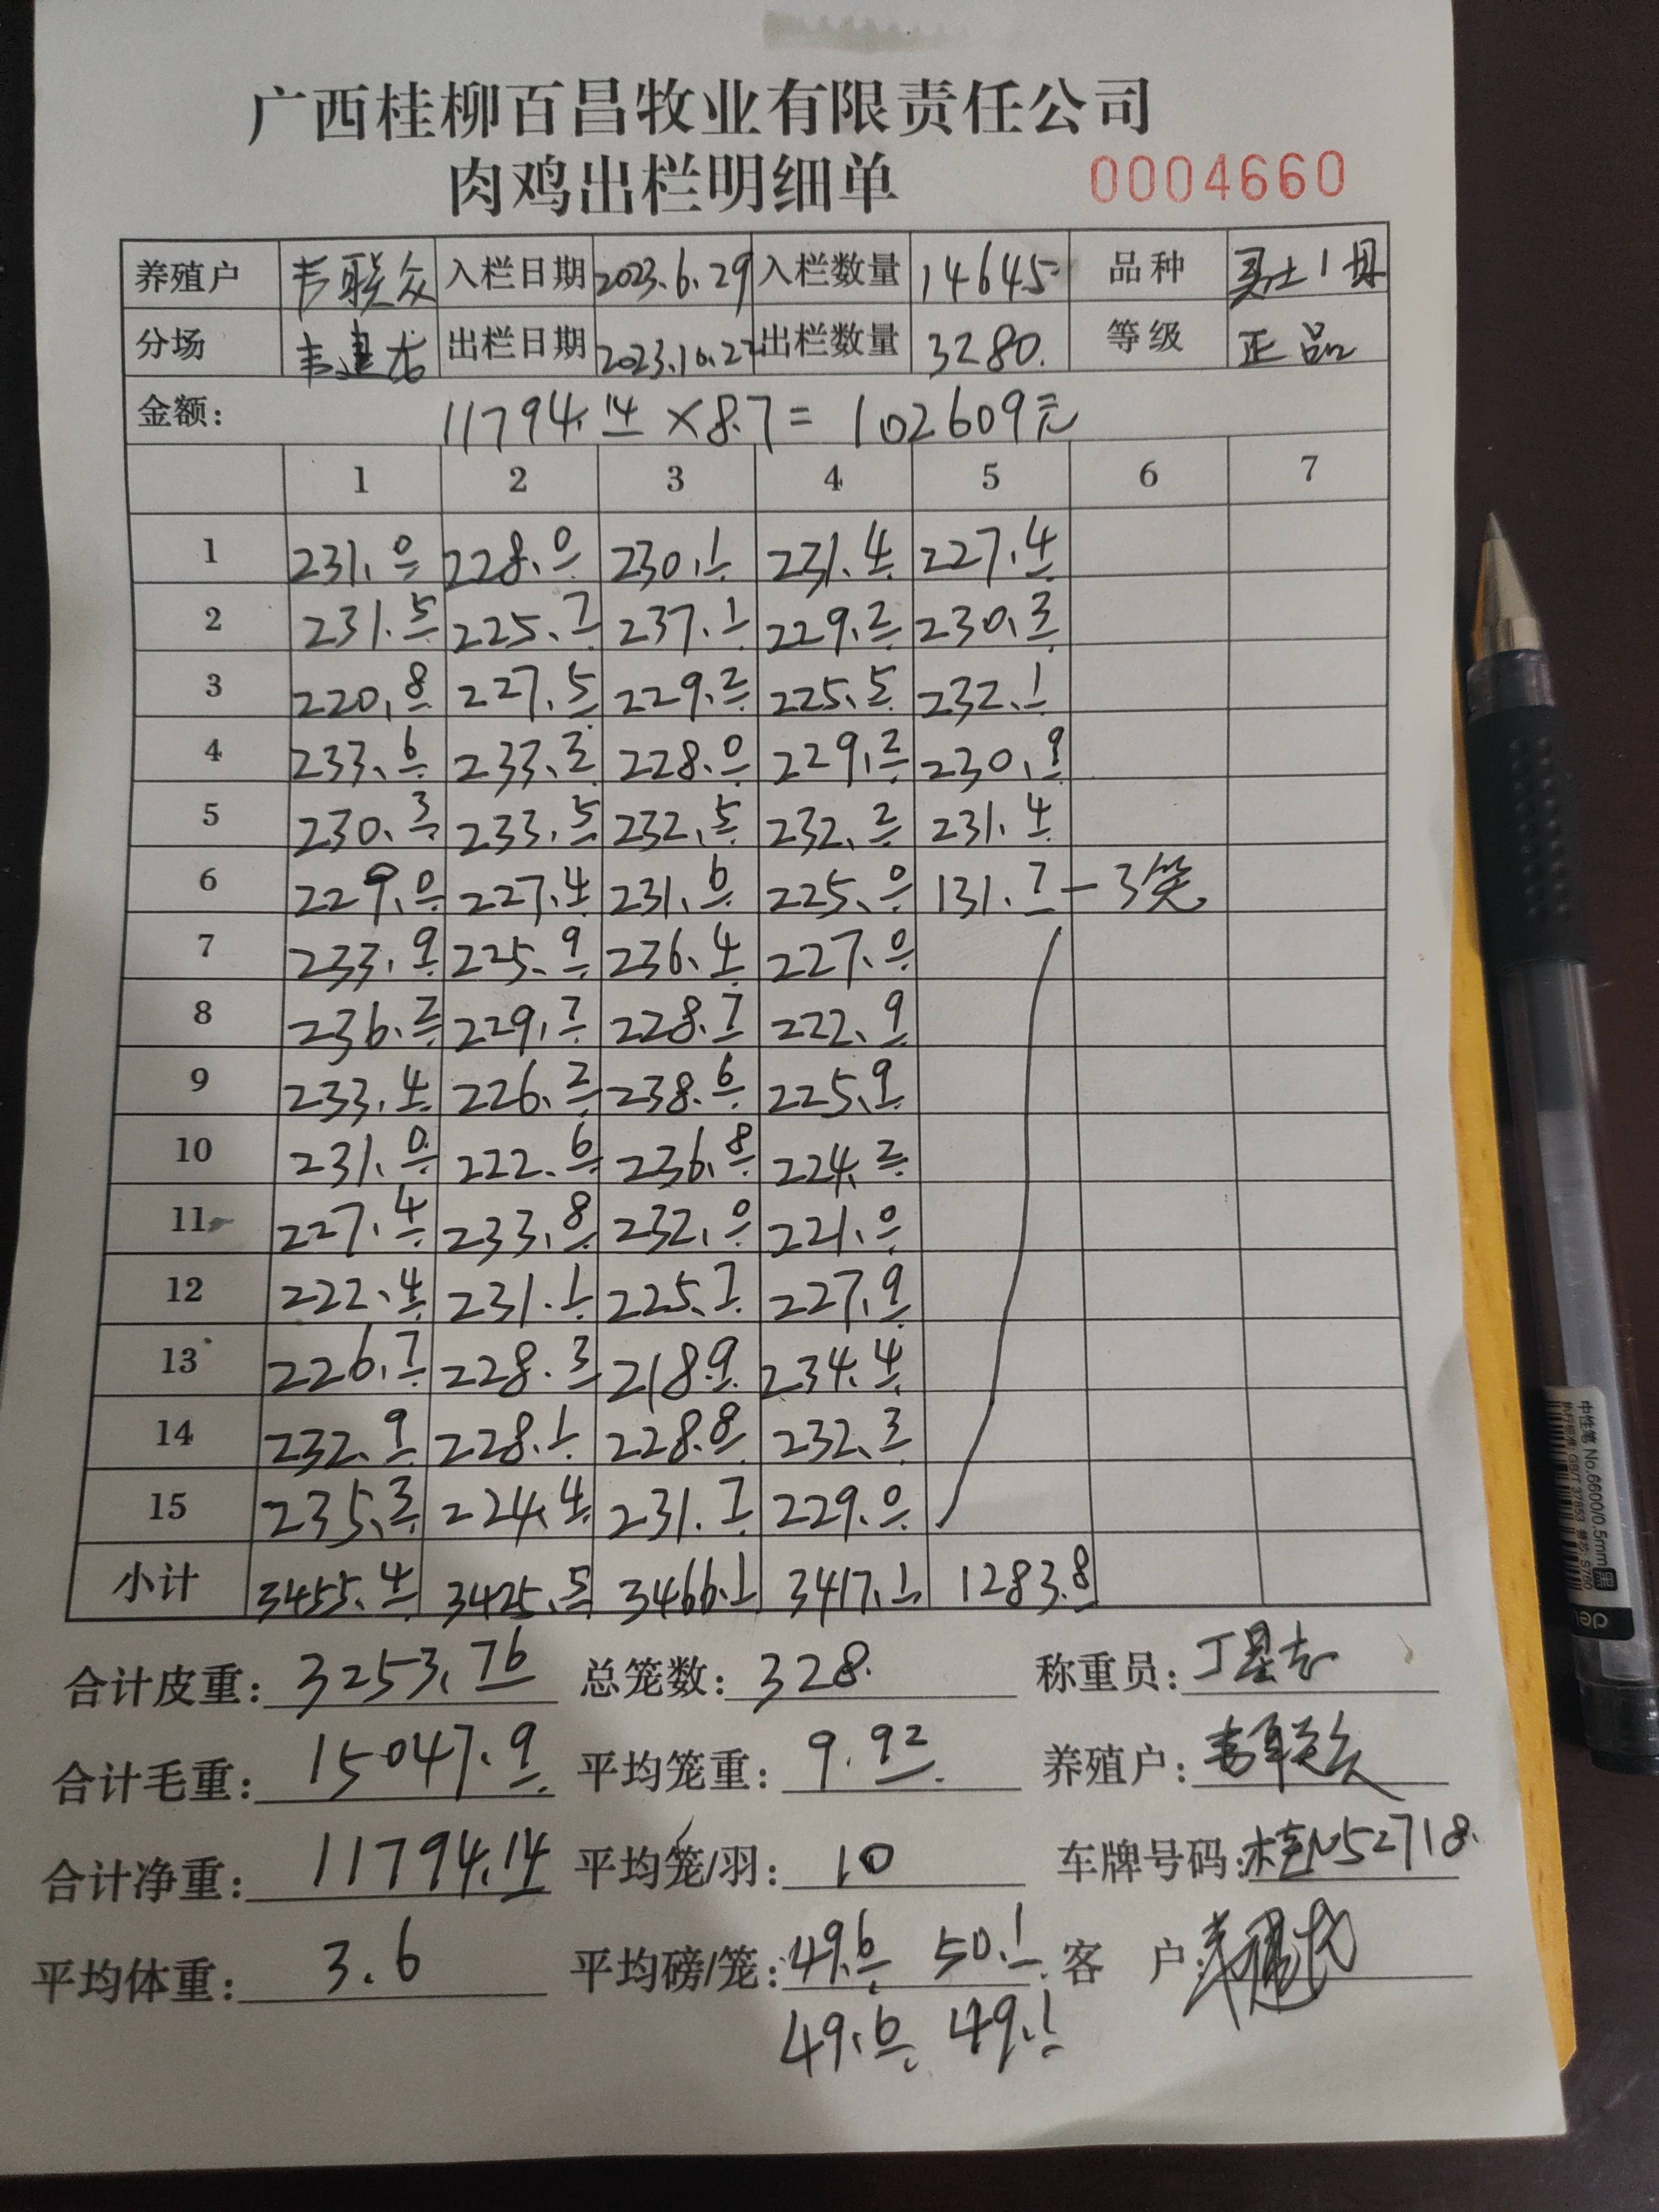 广西桂柳百昌牧业有限责任公司
肉鸡出栏明细单 0004660
养殖户 韦联众 入栏日期 2023.6.29 入栏数量 14645 品种
分场 韦建龙 出栏日期 2023.10.27 出栏数量 3280. 等级 正品
金额: 11794.14 ×8.7= 102609元
1 2 3 4 5 6 7
1 231.0 228.0 230.1 231.4 227.4
2 231.5 225.7 237.1 229.2 230.3
3 220.8 227.5 229.2 225.5 232.1
4 233.6 233.2 228.0 229.2 230.9
5 230.3 233.5 232.5 232.2 231.4
6 229.0 227.4 231.6 225.0 131.7 —3笼
7 233.9 225.9 236.4 227.0
8 236.2 229.7 228.7 222.9
9 233.4 226.2 238.6 225.9
10 231.0 222.6 236.8 224.2
11 227.4 233.8 232.0 221.0
12 222.4 231.1 225.7 227.9
13 226.7 228.3 218.9 234.4
14 232.9 228.1 228.8 232.3
15 235.3 224.4 231.7 229.0
小计 3455.4 3425.5 3466.1 3417.1 1283.8
合计皮重: 3253.76 总笼数: 328. 称重员: 丁星志
合计毛重: 15047.9 平均笼重: 9.92 养殖户: 韦联众
合计净重: 11794.14 平均笼/羽: 10 车牌号码: 桂N52718.
平均体重: 3.6 平均磅/笼: 49.6 50.1 客 户:
49.6 49.1
中性笔 No.66000.5mm 黑